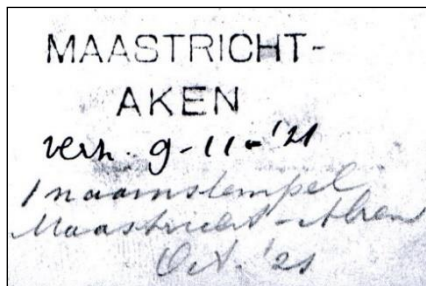 MAASTRICHT-
AKEN
verz. 9-11-'21
1 naamstempel
Maastricht-Aken
Oct. '21